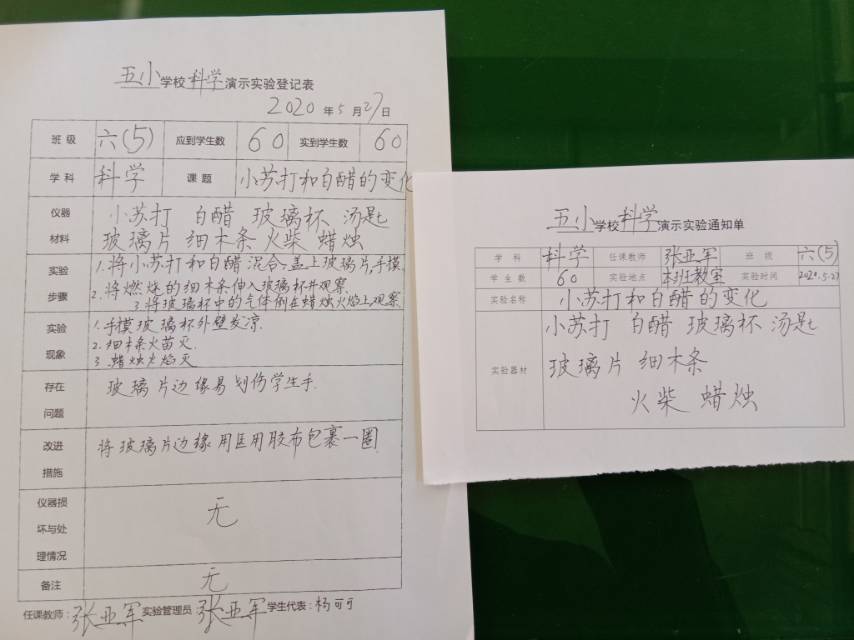 五小学校科学演示实验登记表
2020年5月27日
班级 六(5) 应到学生数 60 实到学生数 60
学科 科学 课题 小苏打和白醋的变化
仪器材料 小苏打 白醋 玻璃杯 汤匙
玻璃片 细木条 火柴 蜡烛
实验步骤 1.将小苏打和白醋混合,盖上玻璃片,手摸.
2.将燃烧的细木条伸入玻璃杯中观察.
3.将玻璃杯中的气体倒在蜡烛火焰上观察
实验现象 1.手摸玻璃杯外壁发凉.
2.细木条火苗灭.
3.蜡烛火焰灭
存在问题 玻璃片边缘易划伤学生手.
改进措施 将玻璃片边缘用医用胶布包裹一圈
仪器损坏与处理情况 无
备注 无
任课教师:张亚军 实验管理员 张亚军 学生代表:杨可可
五小学校科学演示实验通知单
学科 科学 任课教师 张亚军 班级 六(5)
学生数 60 实验地点 本班教室 实验时间 2020.5.27
实验名称 小苏打和白醋的变化
实验器材 小苏打 白醋 玻璃杯 汤匙
玻璃片 细木条
火柴 蜡烛